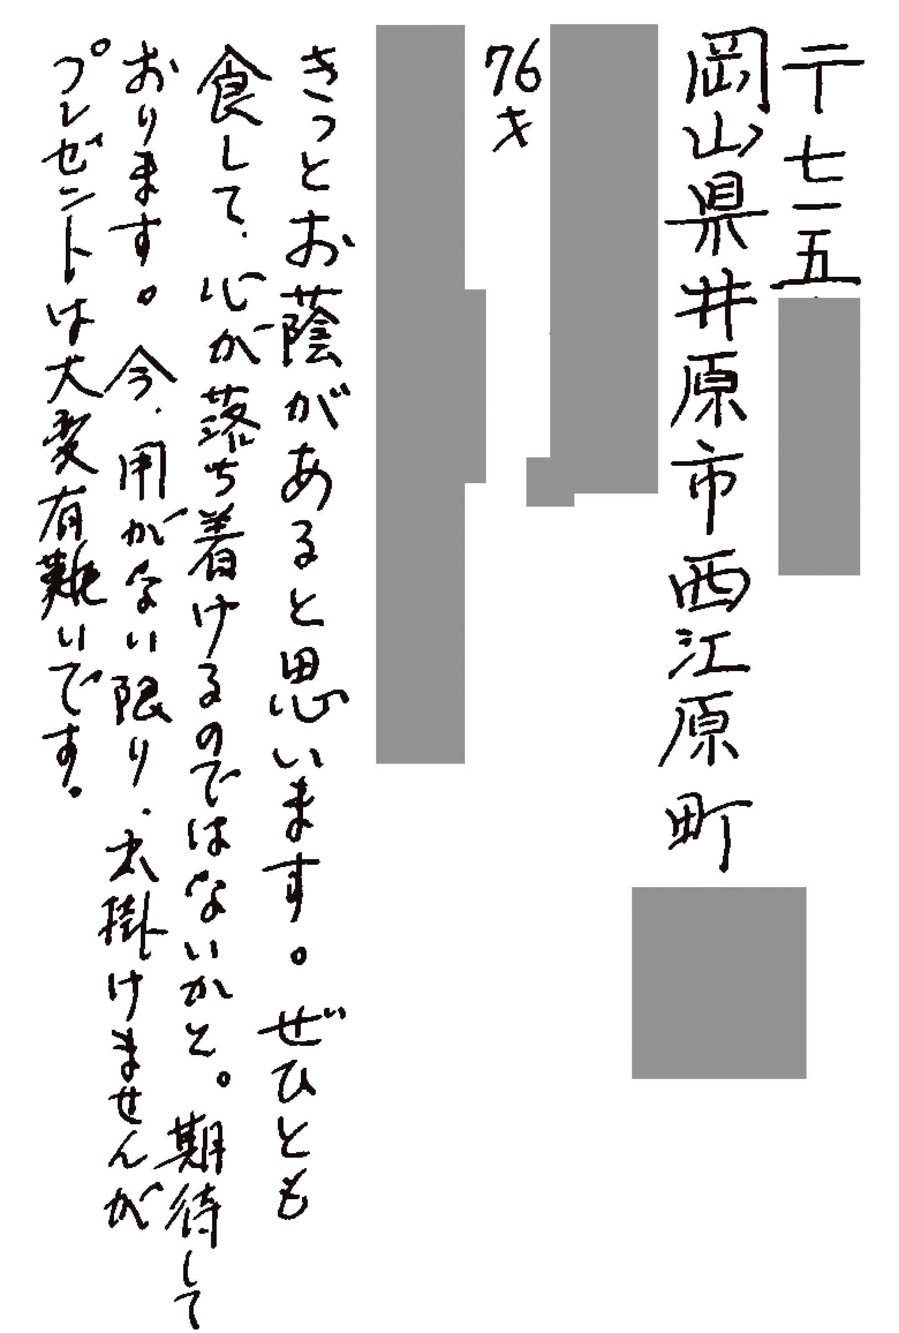 〒七一五
岡山県井原市西江原町
76才
きっとお蔭があると思います。ぜひとも
食して、心が落ち着けるのではないかと。期待して
おります。今、用がない限り、出掛けませんが
プレゼントは大変有難いです。